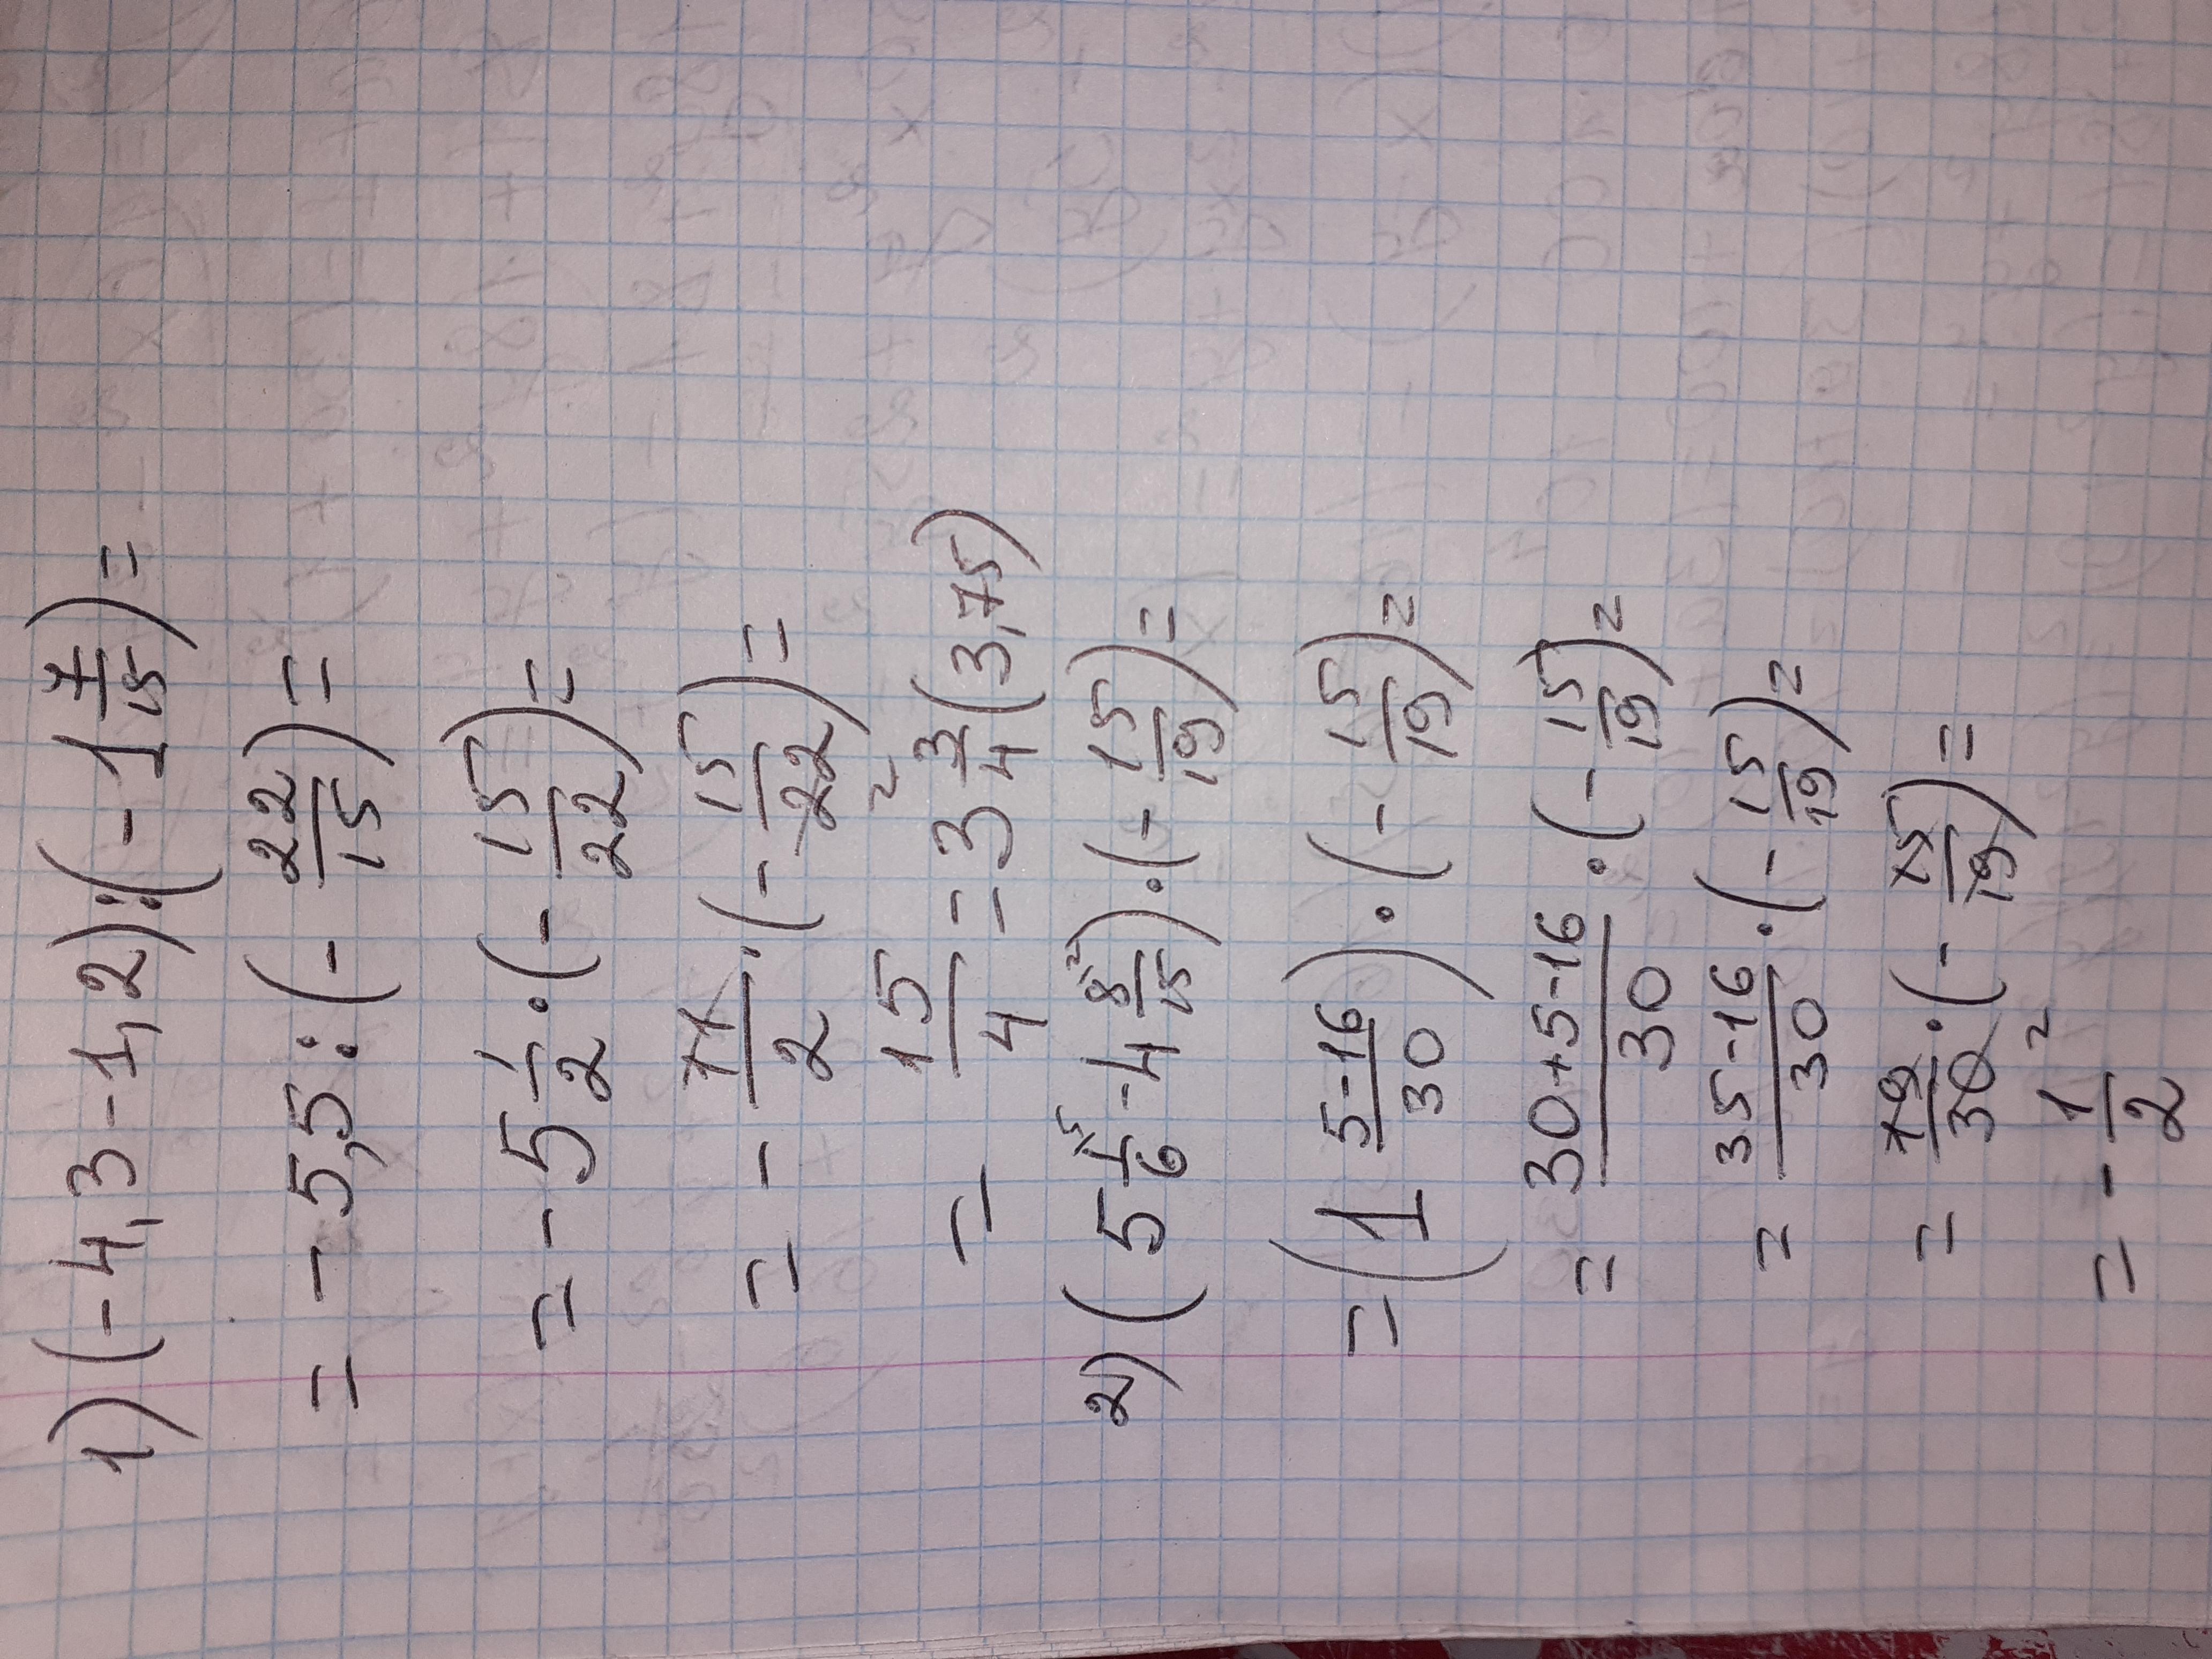 1) (-4,3-1,2):(-1 7/15)=
= -5,5:(-22/15)=
= -5 1/2 · (-15/22)=
= - 11/2 · (-15/22)=
2
= 15/4 = 3 3/4 (3,75)
2) (5 1/6 ⁵ - 4 8/15 ²) · (-15/19)=
= (1 5-16/30) · (-15/19)=
= 30+5-16/30 · (-15/19)=
= 35-16/30 · (-15/19)=
= 19/30 · (-15/19)=
2
= - 1/2